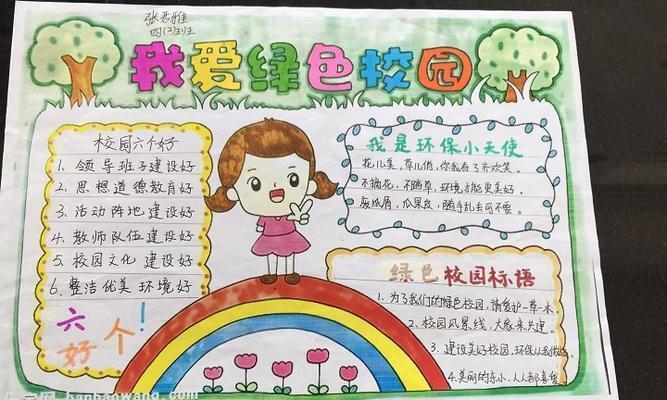 张思雅
四(3)班
我爱绿色校园
校园六个好
1. 领导班子建设好
2. 思想道德教育好
3. 活动阵地建设好
4. 教师队伍建设好
5. 校园文化建设好
6. 整洁优美环境好
六个好!
我是环保小天使
花儿美,草儿俏,你我看了齐欢笑。
不摘花,不踏草,环境才能更美好。
废纸屑,瓜果皮,随手乱丢可不要。
绿色校园标语
1. 为了我们的绿色校园,请爱护一草一木.
2. 校园风景线,大家来共建.
3. 建设美好校园,环保从我做
4. 美丽的东小,人人都喜爱
banbanwang.com